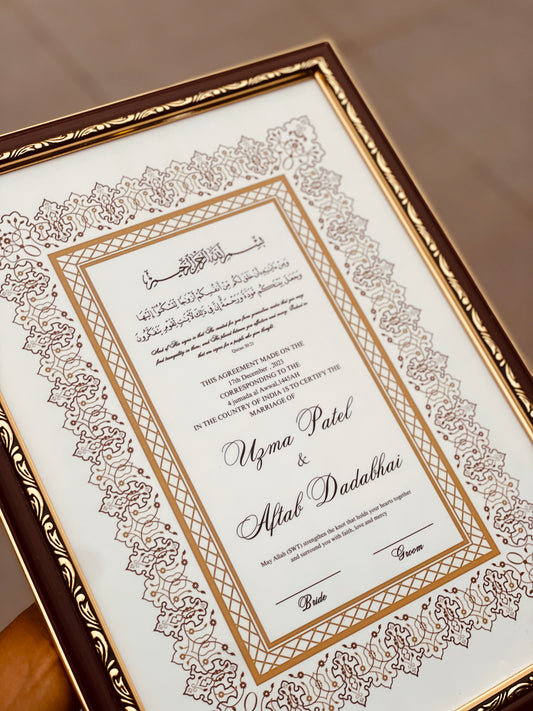 بِسْمِ اللَّهِ الرَّحْمَٰنِ الرَّحِيمِ
وَمِنْ آيَاتِهِ أَنْ خَلَقَ لَكُم مِّنْ أَنفُسِكُمْ أَزْوَاجًا لِّتَسْكُنُوا إِلَيْهَا
وَجَعَلَ بَيْنَكُم مَّوَدَّةً وَرَحْمَةً إِنَّ فِي ذَٰلِكَ لَآيَاتٍ لِّقَوْمٍ يَتَفَكَّرُونَ
And of His signs is that He created for you from yourselves mates that you may
find tranquility in them; and He placed between you affection and mercy. Indeed in
that are signs for a people who give thought.
Quran 30:21
THIS AGREEMENT MADE ON THE
17th December , 2023
CORRESPONDING TO THE
4 jumada al Awwal,1445AH
IN THE COUNTRY OF INDIA IS TO CERTIFY THE
MARRIAGE OF
Uzma Patel
&
Aftab Dadabhai
May Allah (SWT) strengthen the knot that holds your hearts together
and surround you with faith, love and mercy
Bride
Groom